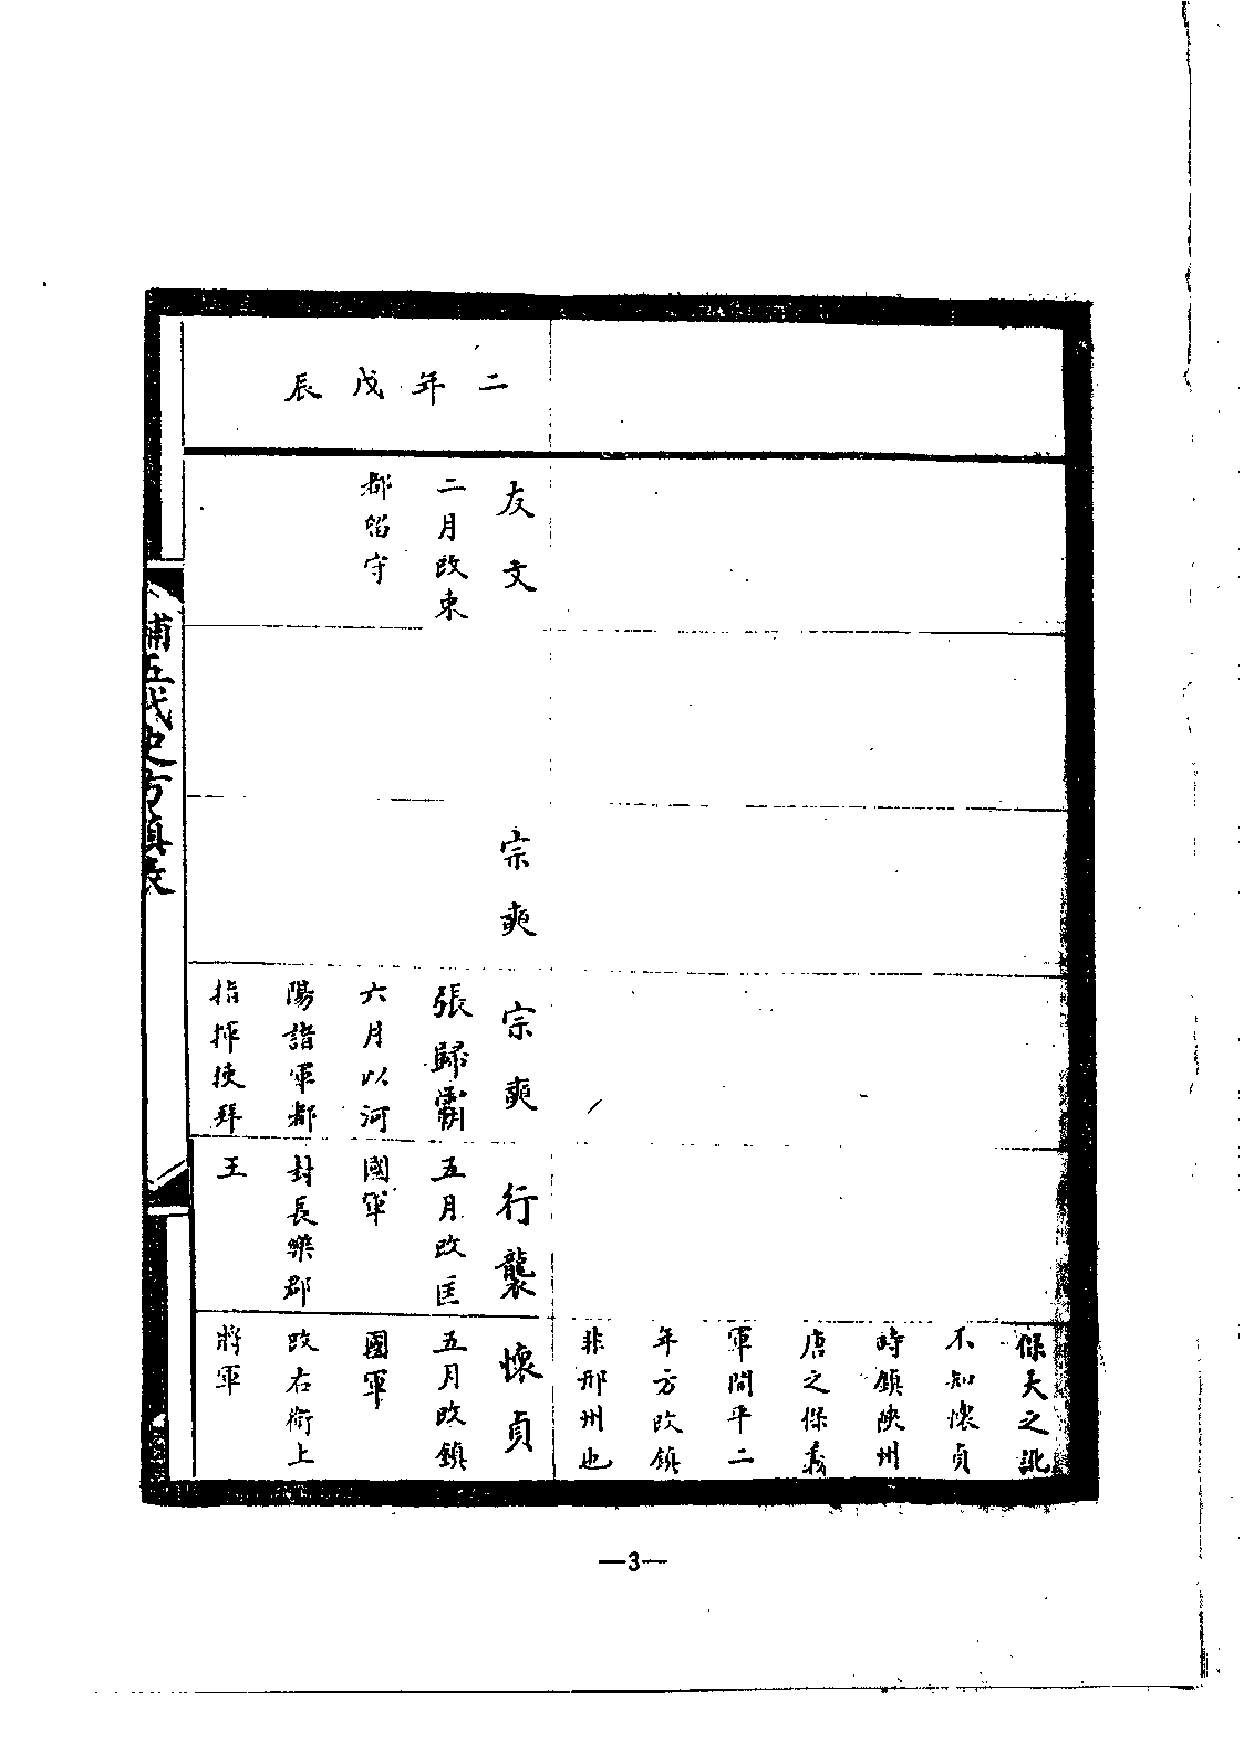 保大之訛
不知懷貞
時鎮陝州
唐之保義
軍開平二
年方改鎮
非邢州也
二年戊辰
友文
二月改東
都留守
宗奭
宗奭
張歸霸
六月以河
陽諸軍都
指揮使拜
行襲
五月改匡
國軍
封長樂郡
王
懷貞
五月改鎮
國軍
改右衛上
將軍
補五代史方鎮表
—3—